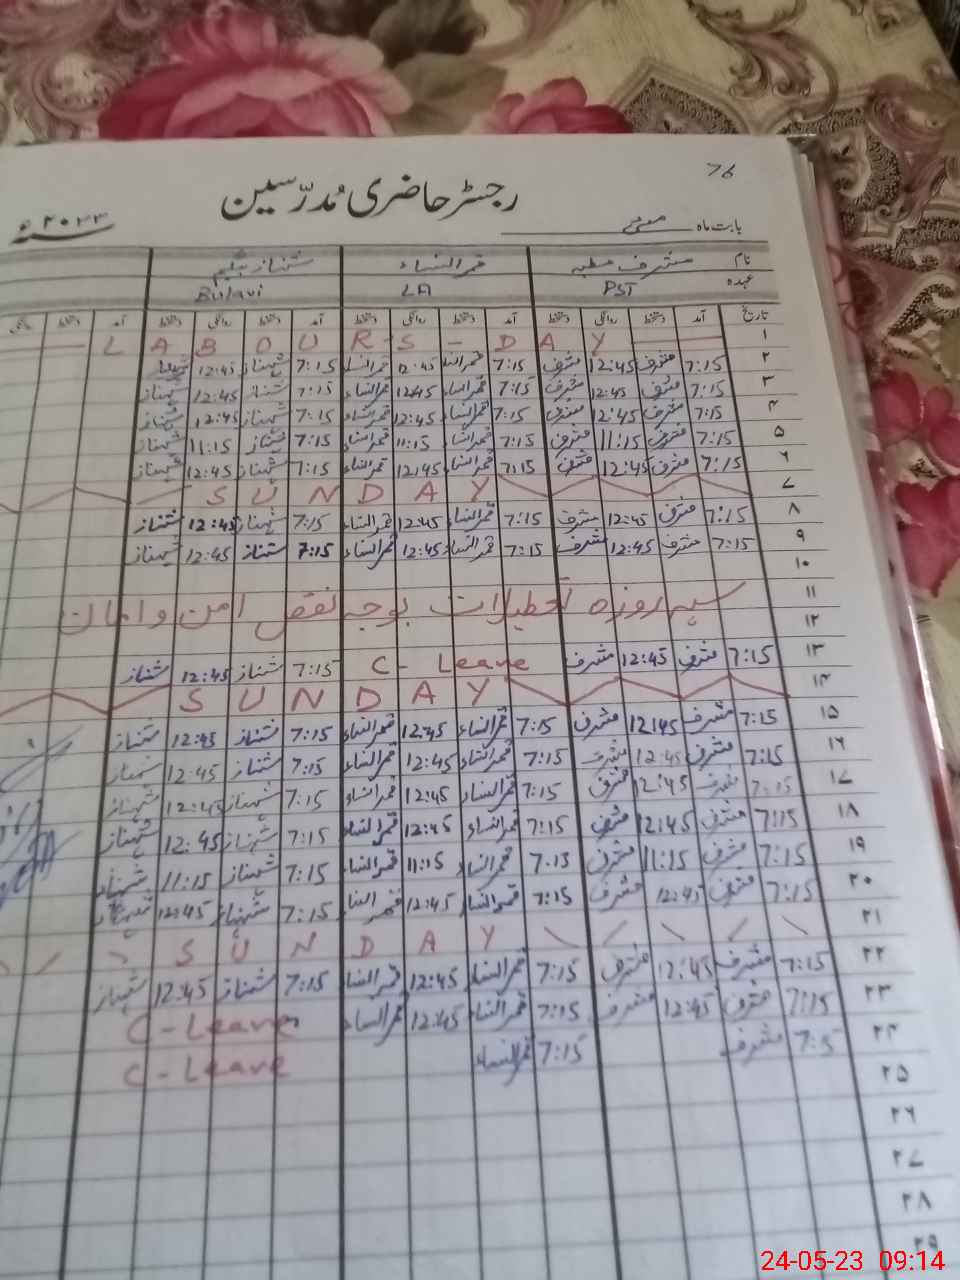 76
رجسٹر حاضری مُدرّسین
بابت ماہ مئی ۲۰۲۳ سنہء
نام مشرف عطیہ قمر النساء شہناز بیگم
عہدہ PST LA Bulavi
تاریخ آمد دستخط روانگی دستخط آمد دستخط روانگی دستخط آمد دستخط روانگی دستخط آمد دستخط روانگی
۱ LABOURS-DAY
۲ 7:15 مشرف 12:45 مشرف 7:15 قمر النساء 12:45 قمر النساء 7:15 شہناز 12:45 شہناز
۳ 7:15 مشرف 12:45 مشرف 7:15 قمر النساء 12:45 قمر النساء 7:15 شہناز 12:45 شہناز
۴ 7:15 مشرف 12:45 مشرف 7:15 قمر النساء 12:45 قمر النساء 7:15 شہناز 12:45 شہناز
۵ 7:15 مشرف 11:15 مشرف 7:15 قمر النساء 11:15 قمر النساء 7:15 شہناز 11:15 شہناز
۶ 7:15 مشرف 12:45 مشرف 7:15 قمر النساء 12:45 قمر النساء 7:15 شہناز 12:45 شہناز
۷ SUNDAY
۸ 7:15 مشرف 12:45 مشرف 7:15 قمر النساء 12:45 قمر النساء 7:15 شہناز 12:45 شہناز
۹ 7:15 مشرف 12:45 مشرف 7:15 قمر النساء 12:45 قمر النساء 7:15 شہناز 12:45 شہناز
۱۰
۱۱ سہ روزہ تعطیلات بوجہ نقص امن و امان
۱۲
۱۳ 7:15 مشرف 12:45 مشرف C- Leave 7:15 شہناز 12:45 شہناز
۱۴ SUNDAY
۱۵ 7:15 مشرف 12:45 مشرف 7:15 قمر النساء 12:45 قمر النساء 7:15 شہناز 12:45 شہناز
۱۶ 7:15 مشرف 12:45 مشرف 7:15 قمر النساء 12:45 قمر النساء 7:15 شہناز 12:45 شہناز
۱۷ 7:15 مشرف 12:45 مشرف 7:15 قمر النساء 12:45 قمر النساء 7:15 شہناز 12:45 شہناز
۱۸ 7:15 مشرف 12:45 مشرف 7:15 قمر النساء 12:45 قمر النساء 7:15 شہناز 12:45 شہناز
۱۹ 7:15 مشرف 11:15 مشرف 7:15 قمر النساء 11:15 قمر النساء 7:15 شہناز 11:15 شہناز
۲۰ 7:15 مشرف 12:45 مشرف 7:15 قمر النساء 12:45 قمر النساء 7:15 شہناز 12:45 شہناز
۲۱ SUNDAY
۲۲ 7:15 مشرف 12:45 مشرف 7:15 قمر النساء 12:45 قمر النساء 7:15 شہناز 12:45 شہناز
۲۳ 7:15 مشرف 12:45 مشرف 7:15 قمر النساء 12:45 قمر النساء C-Leave
۲۴ 7:5 مشرف 7:15 قمر النساء C-Leave
۲۵
۲۶
۲۷
۲۸
۲۹
24-05-23 09:14